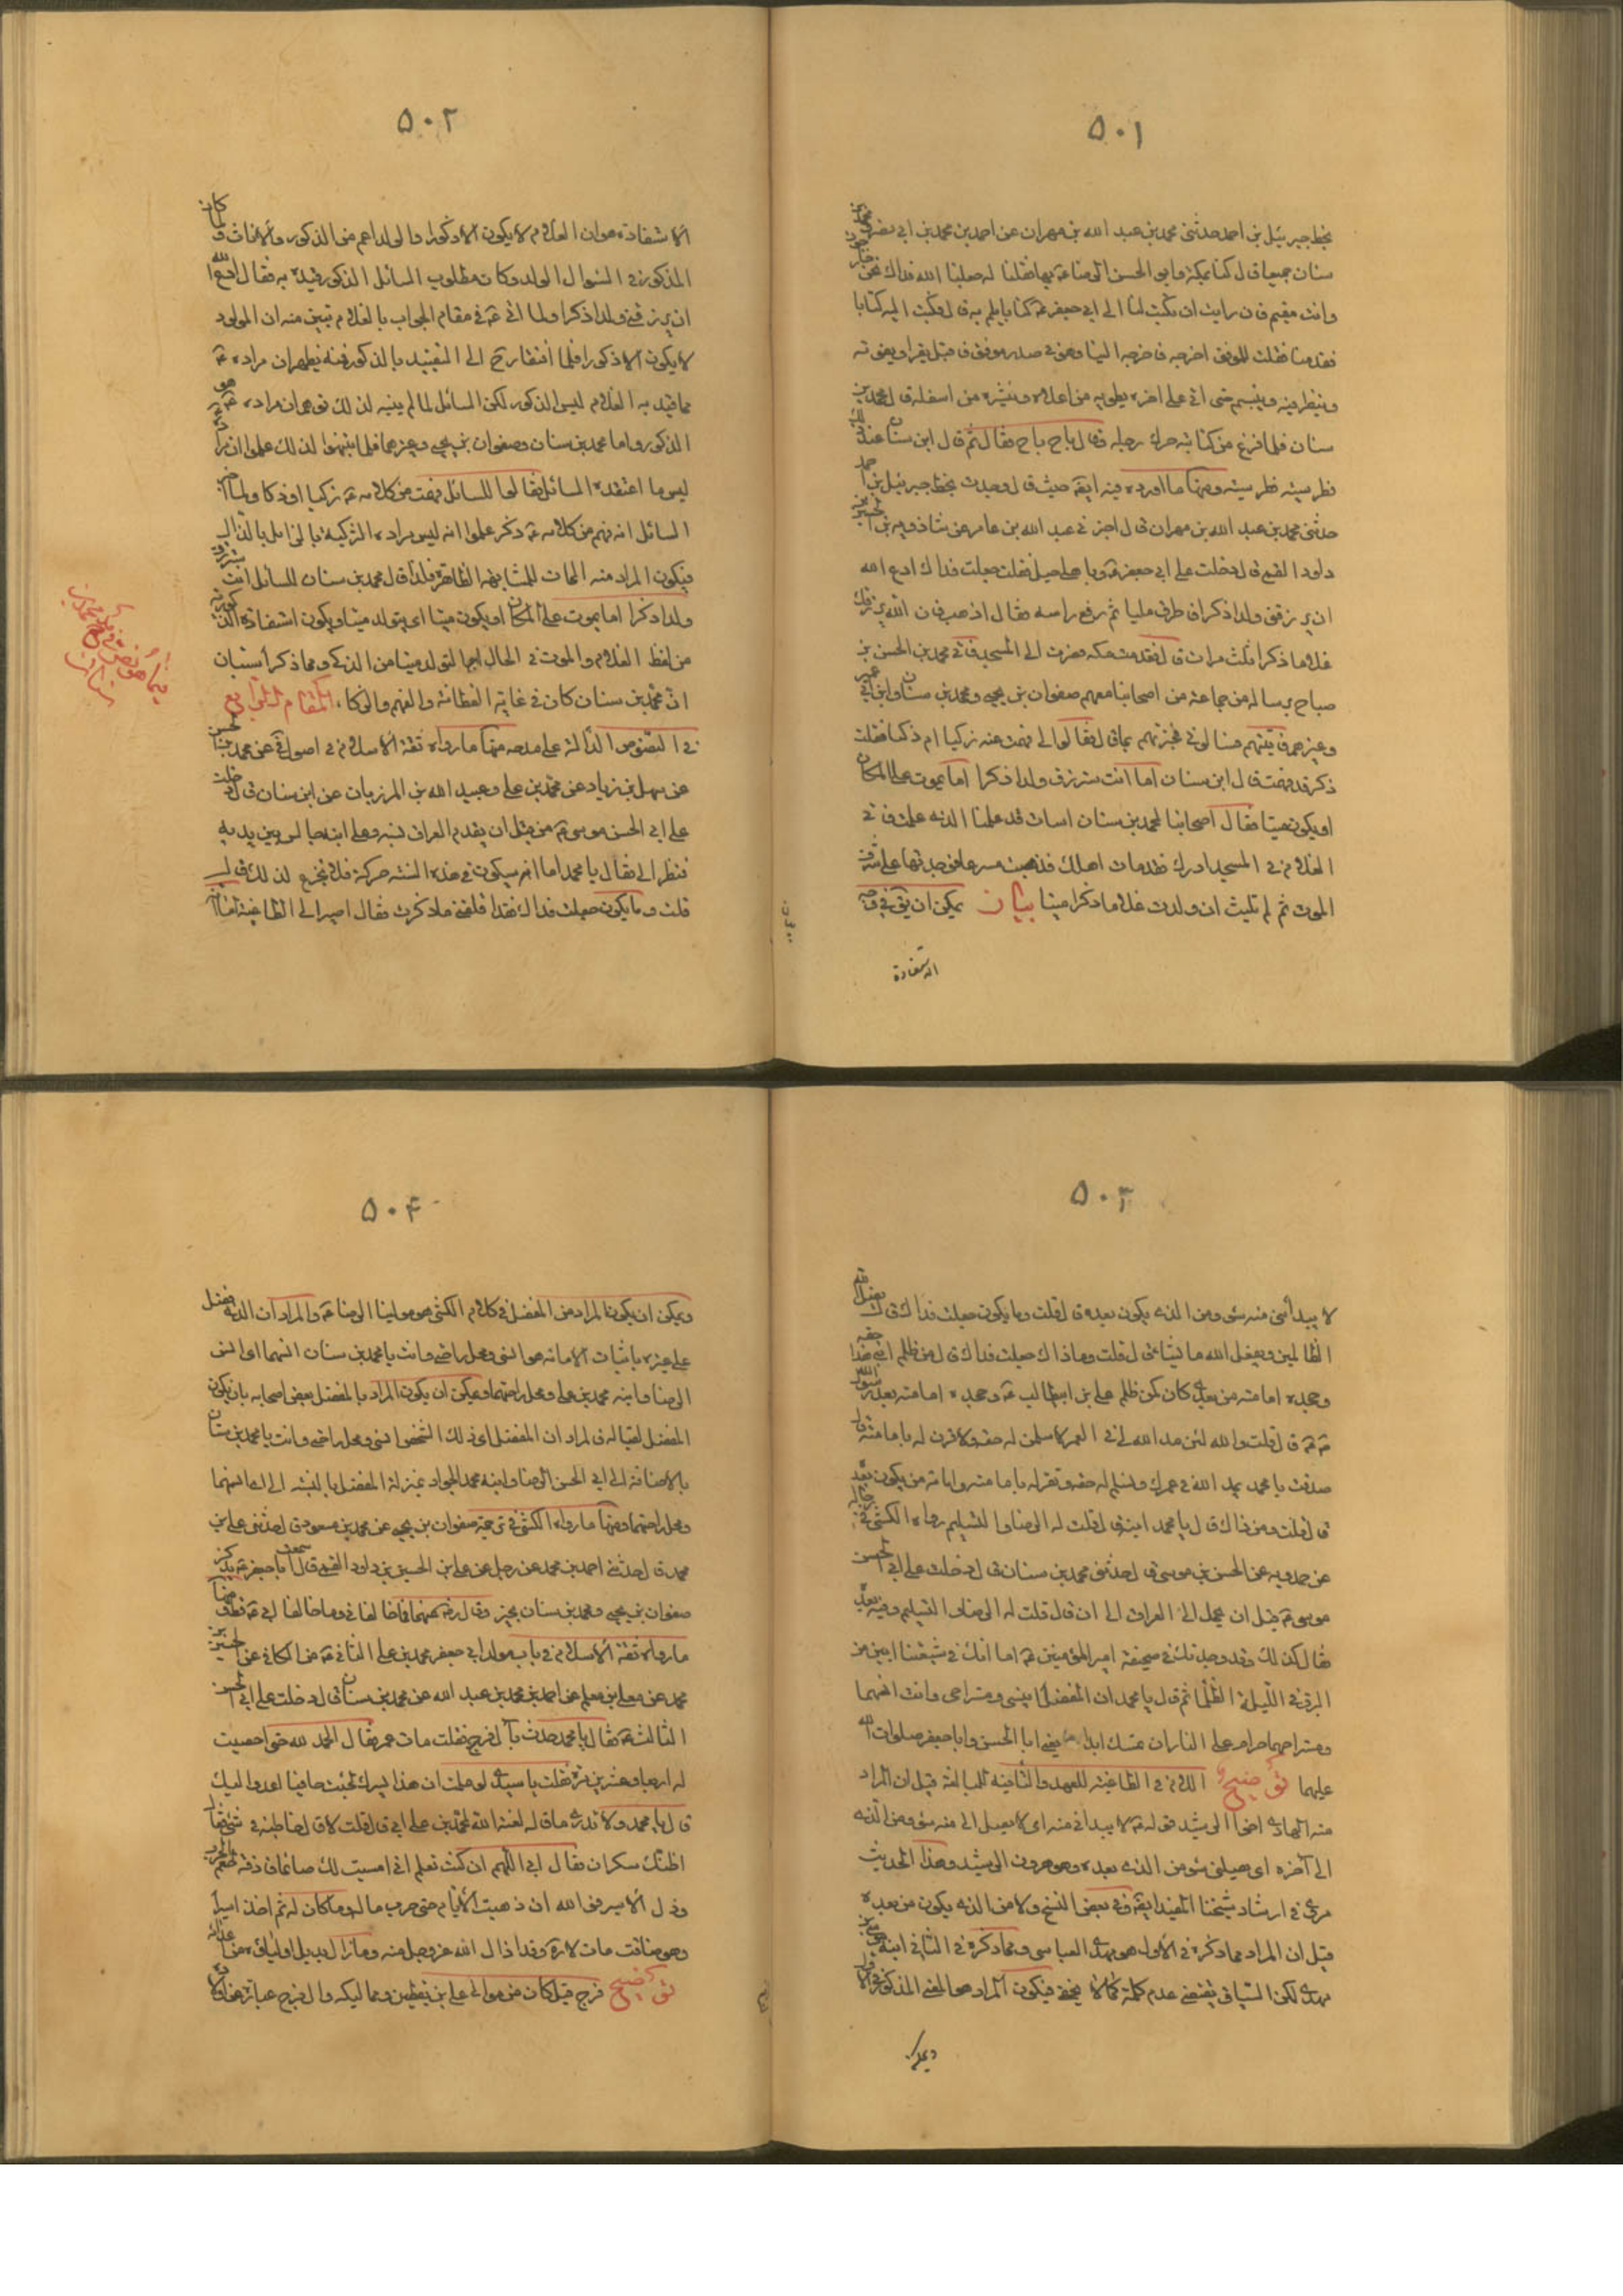 ۵۰۱
بخط جبرئيل بن احمد حدثنى محمد بن عبد الله بن مهران عن احمد بن محمد بن ابى نصر و محمد بن
سنان جميعا قال كنا بمكة وابو الحسن الرضا عَ بها فقلنا له جعلنا الله فداك نحن
وانت مقيم فان رايت ان تكتب لنا الى ابى جعفر عَ كتابا يلم به قال فكتب اليه كتابا
فقدمنا فقلت للموفق اخرجه فاخرجه الينا وهو فى صدر موفق فاقبل يقراه ويطويه
وينظر فيه ويتبسم حتى اتى على اخره يطويه من اعلاه وينشره من اسفله قال محمد بن
سنان فلما فرغ من كتابه حرك رجله وقال باح باح فقال ثم قال ابن سنان عند ذلك
فطرسيه فطرسيه ومنها ما اورده فيه ايضا حيث قال وجدت بخط جبرئيل بن احمد
حدثنى محمد بن عبد الله بن مهران قال اخبرنى عبد الله بن عامر عن شاذويه بن الحسين بن
داود القمى قال دخلت على ابى جعفر عَ وباهلى حبل فقلت جعلت فداك ادع الله
ان يرزقنى ولدا ذكرا فاطرق مليا ثم رفع راسه فقال اذهب فان الله يرزقك
غلاما ذكرا ثلث مرات قال فقدمت مكه فصرت الى المسجد فاتى محمد بن الحسن بن
صباح برساله من جماعة من اصحابنا منهم صفوان بن يحيى ومحمد بن سنان وابن ابى عمير
وغيرهم فاتيتهم فسالونى فخبرتهم بما قال فقالوا لى فهمت عنه زكيا ام ذكيا فقلت
ذكر قد فهمته قال ابن سنان اما انت سترزق ولدا ذكرا اما يموت على المكان
او يكون ميتا فقال اصحابنا لمحمد بن سنان اسات قد علمنا الذى علمت فاتى
الغلام فى المسجد ادرك فقد مات اهلك فذهبت مسرعا فوجدتها على شرف
الموت ثم لم تلبث ان ولدت غلاما ذكرا ميتا بيان يمكن ان يق فى وجه
الاستفادة
۵۰۲
الاستفادة هو ان الغلام لا يكون الا ذكورا والولد اعم من الذكور والاناث ولما كان
المذكور فى السؤال الولد وكان مطلوب السائل الذكور قيده به فقال ادع الله
ان يرزقنى ولدا ذكرا ولما اتى عَ فى مقام الجواب بالغلام تبين منه ان المولود
لا يكون الا ذكورا فلما افتقار ح الى التقييد بالذكور فمنه يظهر ان مراده عَ
مما قيد به الغلام ليس الذكور لكن السائل لما لم ينبه لذلك توهم ان مراده عَ هو
الذكور واما محمد بن سنان وصفوان بن يحيى وغيرهما فلما تنبهوا لذلك علموا ان مراده
ليس ما اعتقده السائل فقالوا للسائل فهمت من كلامه عَ زكيا او ذكيا ولما اخبر
السائل انه فهم من كلامه عَ ذكر علموا انه ليس مراده التزكية بالزاء بل بالذال
فيكون المراد منه المات للمشابهة الظاهرة فلذا قال محمد بن سنان للسائل انت سترزق
ولدا ذكرا اما يموت على المكان او يكون ميتا اى يتولد ميتا ويكون استفادة الذكورية
من لفظ الغلام والموت فى الحال اجمالا لتولد ميتا من الذكى ومما ذكر استبان
ان محمد بن سنان كان فى غاية الفطانة والفهم والذكاء المقام الرابع
فى النصوص الدالة على مدحه منها ما رواه ثقة الاسلام فى اصوله عن محمد بن الحسن
عن سهل بن زياد عن محمد بن على وعبيد الله بن المرزبان عن ابن سنان قال دخلت
على ابى الحسن موسى عَ من قبل ان يقدم العراق بسنه وعلى ابنه جالس بين يديه
فنظر الى فقال يا محمد اما انه سيكون فى هذه السنة حركة فلا تجزع لذلك قال
قلت وما يكون جعلت فداك فقد اقلقنى ما ذكرت فقال اصير الى الطاغية اما انه
۵۰۳
لا يبدأنى منه سوء ومن الذى يكون بعده قال قلت وما يكون جعلت فداك قال يضل الله
الظالمين ويفعل الله ما يشاء قال قلت وما ذاك جعلت فداك قال من ظلم ابنى هذا حقه
وجحده امامته من بعدى كان كمن ظلم على بن ابيطالب عَ وجحده امامته بعد رسول الله
قال قلت والله لئن مد الله لى فى العمر لاسلمن له حقه ولاقرن له بامامته قال
صدقت يا محمد يمد الله فى عمرك وتسلم له حقه وتقر له بامامته وامامة من يكون بعده
قال قلت ومن ذاك قال يا محمد ابنه قال قلت له الرضا والتسليم رواه الكشى فى رجاله
عن حمدويه عن الحسن بن موسى قال حدثنى محمد بن سنان قال دخلت على ابى الحسن
موسى عَ قبل ان يحمل الى العراق الى ان قال قلت له الرضا والتسليم وفيه بعده
فقال كذلك وقد وجدتك فى صحيفة امير المؤمنين عَ اما انك فى شيعتنا ابين من
البرق فى الليلة الظلماء ثم قال يا محمد ان المفضل انيسى ومستراحى وانت انسهما
ومستراحهما حرام على النار ان تمسك ابدا يعنى ابا الحسن وابا جعفر صلوات الله
عليهما توضيح اللام فى الطاغية للعهد والتأنيث للمبالغة قيل ان المراد
منه الهادى اخو الرشيد قوله عَ لا يبدانى منه اى لا يصل الى منه سوء ومن الذى
الى آخره اى يصيبنى سوء من الذى بعده وهو هرون الرشيد وهذا الحديث
مروى فى ارشاد شيخنا المفيد ايضا وفى بعض النسخ ولا من الذى يكون من بعده
قيل ان المراد مما ذكره فى الاول هو مهدى العباسى ومما ذكره فى الثانى ابنه موسى بن
مهدى لكن السياق يقتضى عدم كلمة لا كما لا يخفى فيكون المراد هو المعنى المذكور فى الاول
ويمكن
۵۰۴
ويمكن ان يكون المراد من المفضل فى كلام الكشى هو مولينا الرضا عَ والمراد ان الذى يفضل
على غيره باثبات الامامة هو انسى ومحل راحتى وانت يا محمد بن سنان انسهما اى انس
الرضا وابنه محمد بن على ومحل راحتهما ويمكن ان يكون المراد بالمفضل بعض اصحابه بان يكون
المفضل لقبا له فالمراد ان المفضل اى ذلك الشخص انسى ومحل راحتى وانت يا محمد بن سنان
بالاضافة الى ابى الحسن الرضا وابنه محمد الجواد بمنزلة المفضل بالنسبه الى اى انسهما
ومحل راحتهما ومنها ما رواه الكشى فى ترجمة صفوان بن يحيى عن محمد بن مسعود قال حدثنى على بن
محمد قال حدثنى احمد بن محمد عن رجل عن على بن الحسين بن داود القمى قال سمعت ابا جعفر عَ يذكر
صفوان بن يحيى ومحمد بن سنان بخير وقال رضى عنهما فما خالفانى وما خالفا ابى عَ قط ومنها
ما رواه ثقة الاسلام فى باب مولد ابى جعفر محمد بن على الثانى عَ من الكافى عن الحسين بن
محمد عن معلى بن محمد عن احمد بن محمد بن عبد الله عن محمد بن سنان قال دخلت على ابى الحسن
الثالث عَ فقال يا محمد حدث بآل فرج فقلت مات عمر فقال الحمد لله حتى احصيت
له اربعا وعشرين مرة فقلت يا سيدى لو علمت ان هذا يسرك لجئت حافيا اعدو اليك
قال يا محمد ولا تدرى ما قال لعنه الله لمحمد بن على ابى قال قلت لا قال خاطبه فى شئ فقال
اظنك سكران فقال ابى اللهم ان كنت تعلم انى امسيت لك صائما فاذقه طعم الحرب
وذل الاسير فو الله ان ذهبت الايام حتى حرب ماله وما كان له ثم اخذ اسيرا
وهو ذا قد مات لا رحمه الله وقد ادال الله عز وجل منه وما زال يديل اولياءه من اعدائه
توضيح فرج قيل كان من موالى على بن يقطين ومماليكه وال فرج عبارة عن اولاده